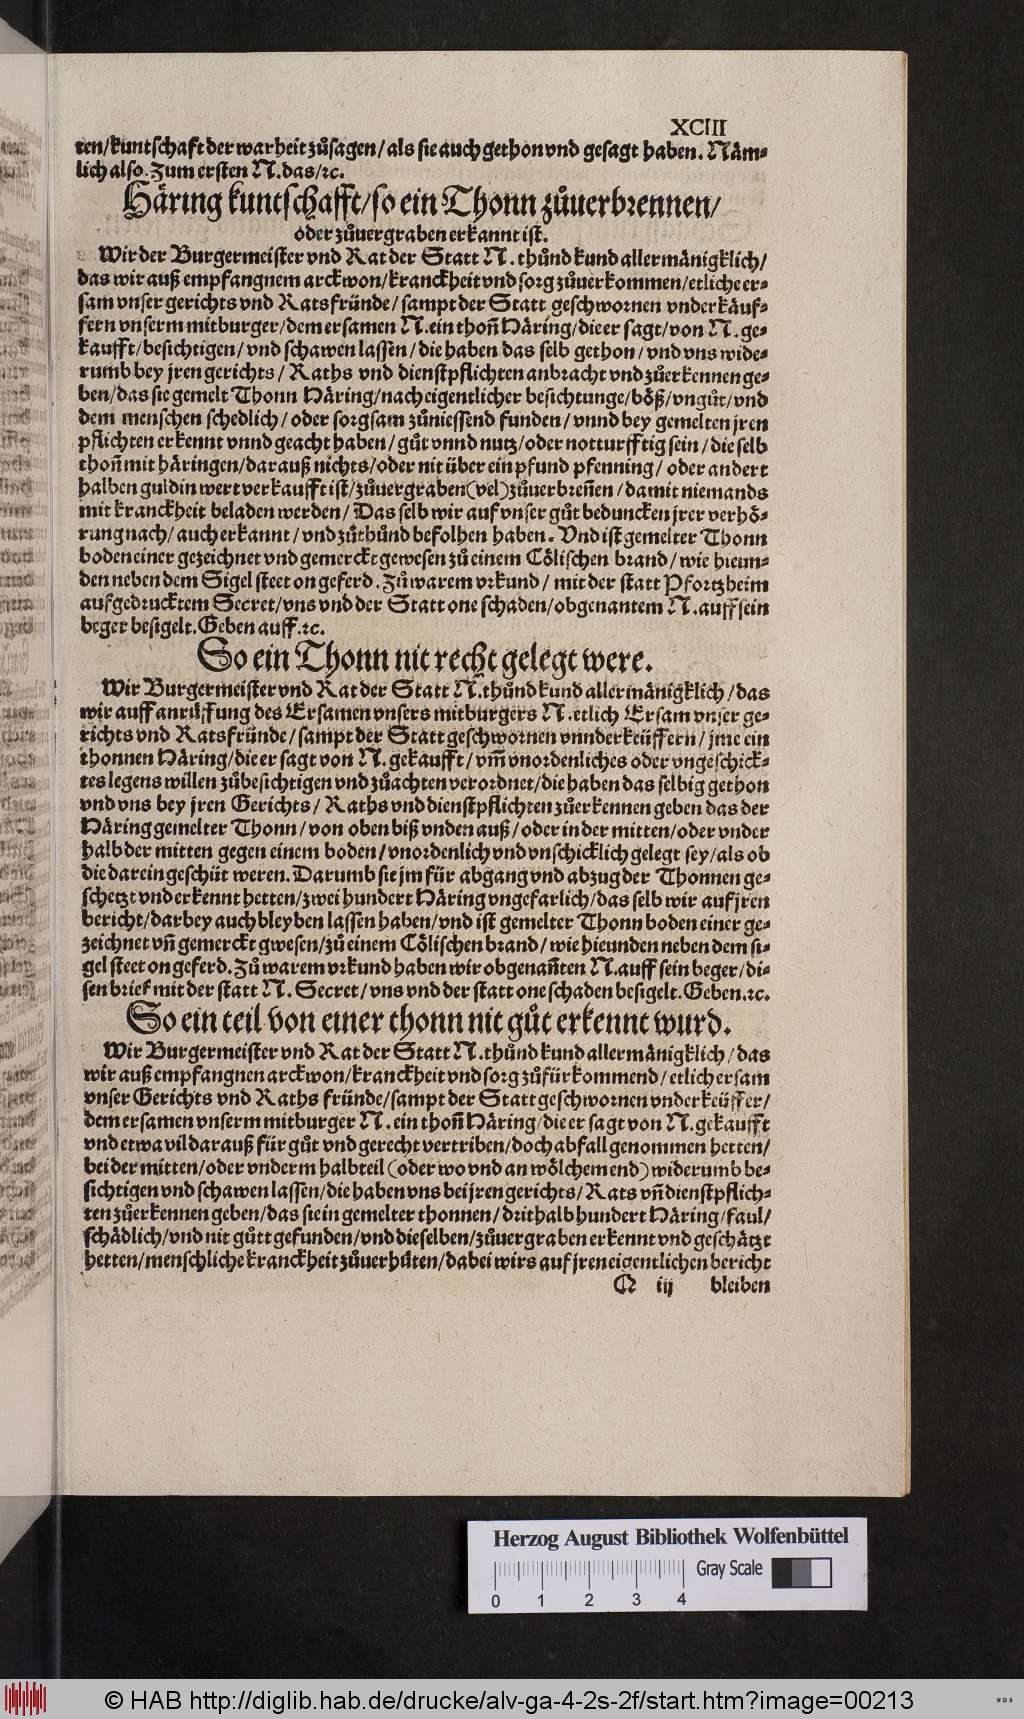 XCIII
ten/kuntschaft der warheit zůsagen/als sie auch gethon vnd gesagt haben. Näm⸗
lich also. Zum ersten N. das/ꝛc.
Häring kuntschafft/so ein Thonn zůuerbrennen/
oder zůuergraben erkannt ist.
Wir der Burgermeister vnd Rat der Statt N. thůnd kund allermänigklich/
das wir auß empfangnem arckwon/kranckheit vnd sorg zůuerkommen/etliche er⸗
sam vnser gerichts vnd Ratsfründe/sampt der Statt geschwornen vnderkäuf⸗
fern vnserm mitburger/dem ersamen N. ein thon̄ Häring/die er sagt/von N. ge⸗
kaufft/besichtigen/vnd schawen lassen/die haben das selb gethon/vnd vns wide⸗
rumb bey jren gerichts/Raths vnd dienstpflichten anbracht vnd zůerkennen ge⸗
ben/das sie gemelt Thonn Häring/nach eigentlicher besichtunge/böß/vngůt/vnd
dem menschen schedlich/oder sorgsam zůniessend funden/vnnd bey gemelten jren
pflichten erkennt vnnd geacht haben/gůt vnnd nutz/oder notturfftig sein/die selb
thon̄ mit häringen/darauß nichts/oder nit über ein pfund pfenning/oder andert
halben guldin wert verkaufft ist/zůuergraben(vel)zůuerbreñen/damit niemands
mit kranckheit beladen werden/Das selb wir auf vnser gůt beduncken jrer verhö⸗
rung nach/auch erkannt/vnd zůthůnd befolhen haben. Vnd ist gemelter Thonn
boden einer gezeichnet vnd gemerckt gewesen zů einem Cölischen brand/wie hieun⸗
den neben dem Sigel steet on geferd. Zů warem vrkund/mit der statt Pfortzheim
aufgedrucktem Secret/vns vnd der Statt one schaden/obgenantem N. auff sein
beger besigelt. Geben auff.ꝛc.
So ein Thonn nit recht gelegt were.
Wir Burgermeister vnd Rat der Statt N. thůnd kund allermänigklich/das
wir auff anrüffung des Ersamen vnsers mitburgers N. etlich Ersam vnser ge⸗
richts vnd Ratsfründe/sampt der Statt geschwornen vnnderkeüffern/jme ein
thonnen Häring/die er sagt von N. gekaufft/vm̄ vnordenliches oder vngeschick⸗
tes legens willen zůbesichtigen vnd zůachten verordnet/die haben das selbig gethon
vnd vns bey jren Gerichts/Raths vnd dienstpflichten zůerkennen geben das der
Häring gemelter Thonn/von oben biß vnden auß/oder in der mitten/oder vnder
halb der mitten gegen einem boden/vnordenlich vnd vnschicklich gelegt sey/als ob
die darein geschüt weren. Darumb sie jm für abgang vnd abzug der Thonnen ge⸗
schetzt vnd erkennt hetten/zwei hundert Häring vngefarlich/das selb wir auf jren
bericht/darbey auch bleyben lassen haben/vnd ist gemelter Thonn boden einer ge⸗
zeichnet vñ gemerckt gwesen/zů einem Cölischen brand/wie hieunden neben dem si⸗
gel steet on geferd. Zů warem vrkund haben wir obgenañten N. auff sein beger/di⸗
sen brief mit der statt N. Secret/vns vnd der statt one schaden besigelt. Geben.ꝛc.
So ein teil von einer thonn nit gůt erkennt wurd.
Wir Burgermeister vnd Rat der Statt N. thůnd kund allermänigklich/das
wir auß empfangnen arckwon/kranckheit vnd sorg zůfürkommend/etlich ersam
vnser Gerichts vnd Raths fründe/sampt der Statt geschwornen vnderkeüffer/
dem ersamen vnserm mitburger N. ein thon̄ Häring/die er sagt von N. gekaufft
vnd etwa vil darauß für gůt vnd gerecht vertriben/doch abfall genommen hetten/
bei der mitten/oder vnderm halbteil (oder wo vnd an wölchem end) widerumb be⸗
sichtigen vnd schawen lassen/die haben vns bei jren gerichts/Rats vñ dienstpflich⸗
ten zůerkennen geben/das sie in gemelter thonnen/drithalb hundert Häring/faul/
schädlich/vnd nit gůtt gefunden/vnd dieselben/zůuergraben erkennt vnd geschätzt
hetten/menschliche kranckheit zůuerhüten/dabei wirs auf jren eigentlichen bericht
Q iij bleiben
Herzog August Bibliothek Wolfenbüttel
Gray Scale
0 1 2 3 4
© HAB http://diglib.hab.de/drucke/alv-ga-4-2s-2f/start.htm?image=00213
WDB